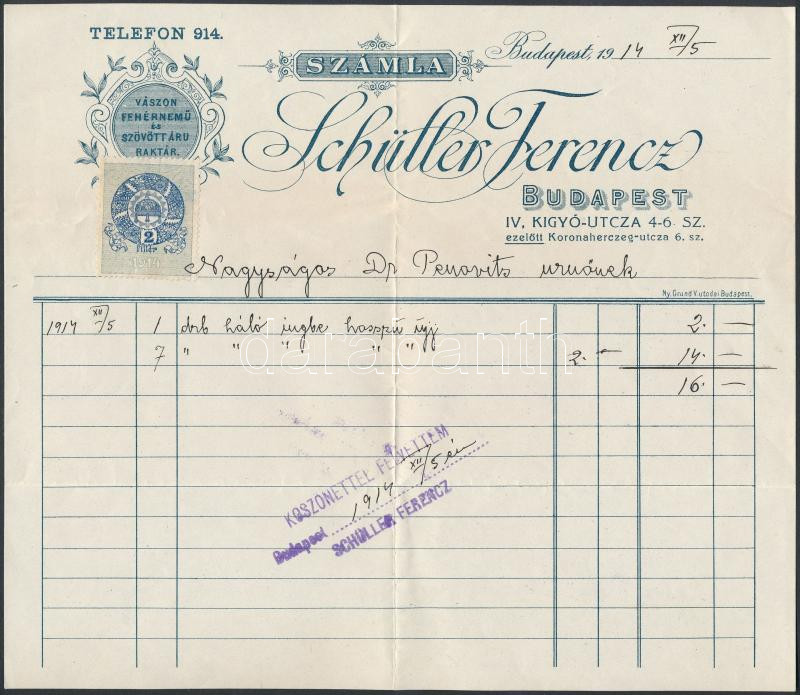 TELEFON 914.
SZÁMLA
Budapest, 1914 XII/5
VÁSZON
FEHÉRNEMŰ
és
SZÖVÖTTÁRU
RAKTÁR.
Schüller Ferencz
BUDAPEST
IV, KIGYÓ-UTCZA 4-6 SZ.
ezelőtt Koronaherczeg-utcza 6. sz.
2
1914
Nagyságos Dr Penovits urnőnek
Ny. Grund V. utodai Budapest.
1914 XII/5 1 drb háló ingbe hosszú ujj 2. —
7 " " " " " 2. — 14. —
16. —
darabanth.com
KÖSZÖNETTEL FELVETTEM
Budapest 1914 XII/5 én
SCHÜLLER FERENCZ